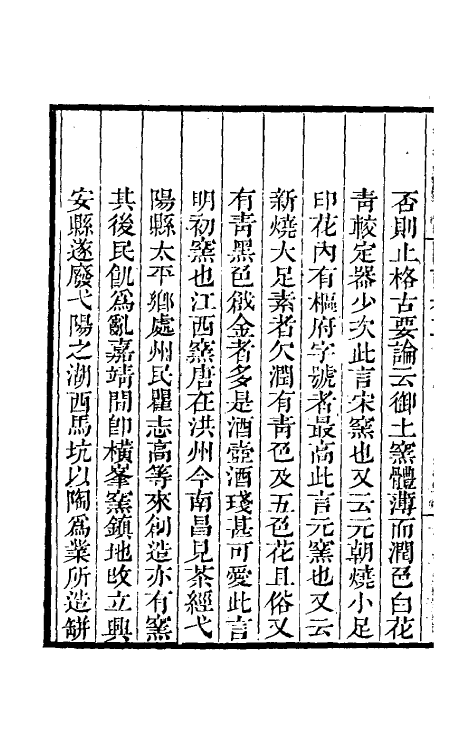 否則止格古要論云御土窰體薄而潤色白花
靑較定器少次此言宋窰也又云元朝燒小足
印花內有樞府字號者最高此言元窰也又云
新燒大足素者欠潤有靑色及五色花且俗又
有靑黑色戧金者多是酒壺酒琖甚可愛此言
明初窰也江西窰唐在洪州今南昌見茶經弋
陽縣太平鄉處州民瞿志高等來創造亦有窰
其後民飢爲亂嘉靖間卽橫峯窰鎮地改立興
安縣遂廢弋陽之湖西馬坑以陶爲業所造缾